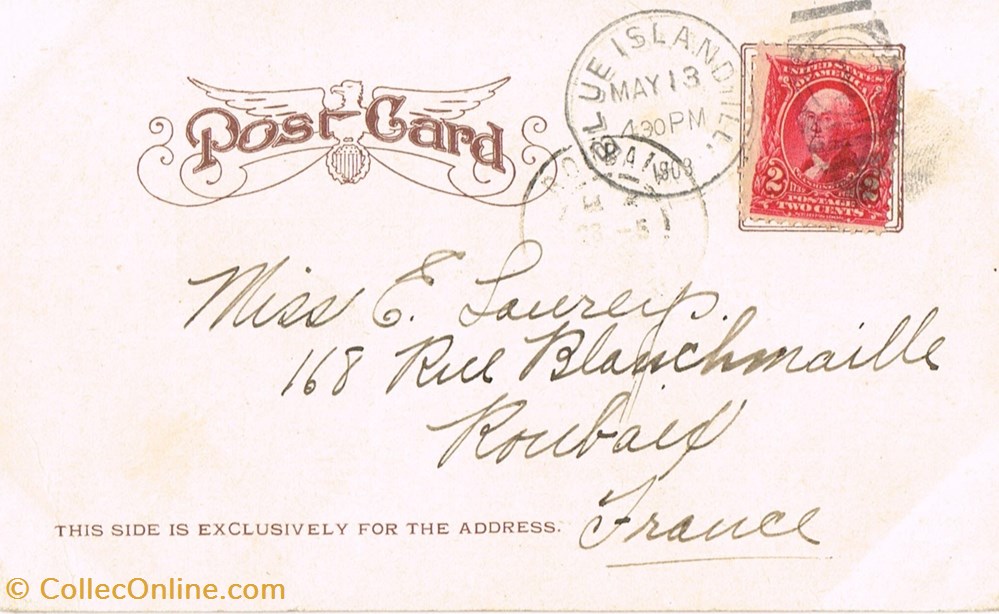 Post Card
BLUE ISLAND, ILL.
MAY 13
4 30 PM
1903
UNITED STATES
OF AMERICA
2 2
POSTAGE
TWO CENTS
Miss E.
168 Rue Blanchmaille
Roubaix
France
THIS SIDE IS EXCLUSIVELY FOR THE ADDRESS.
© CollecOnline.com